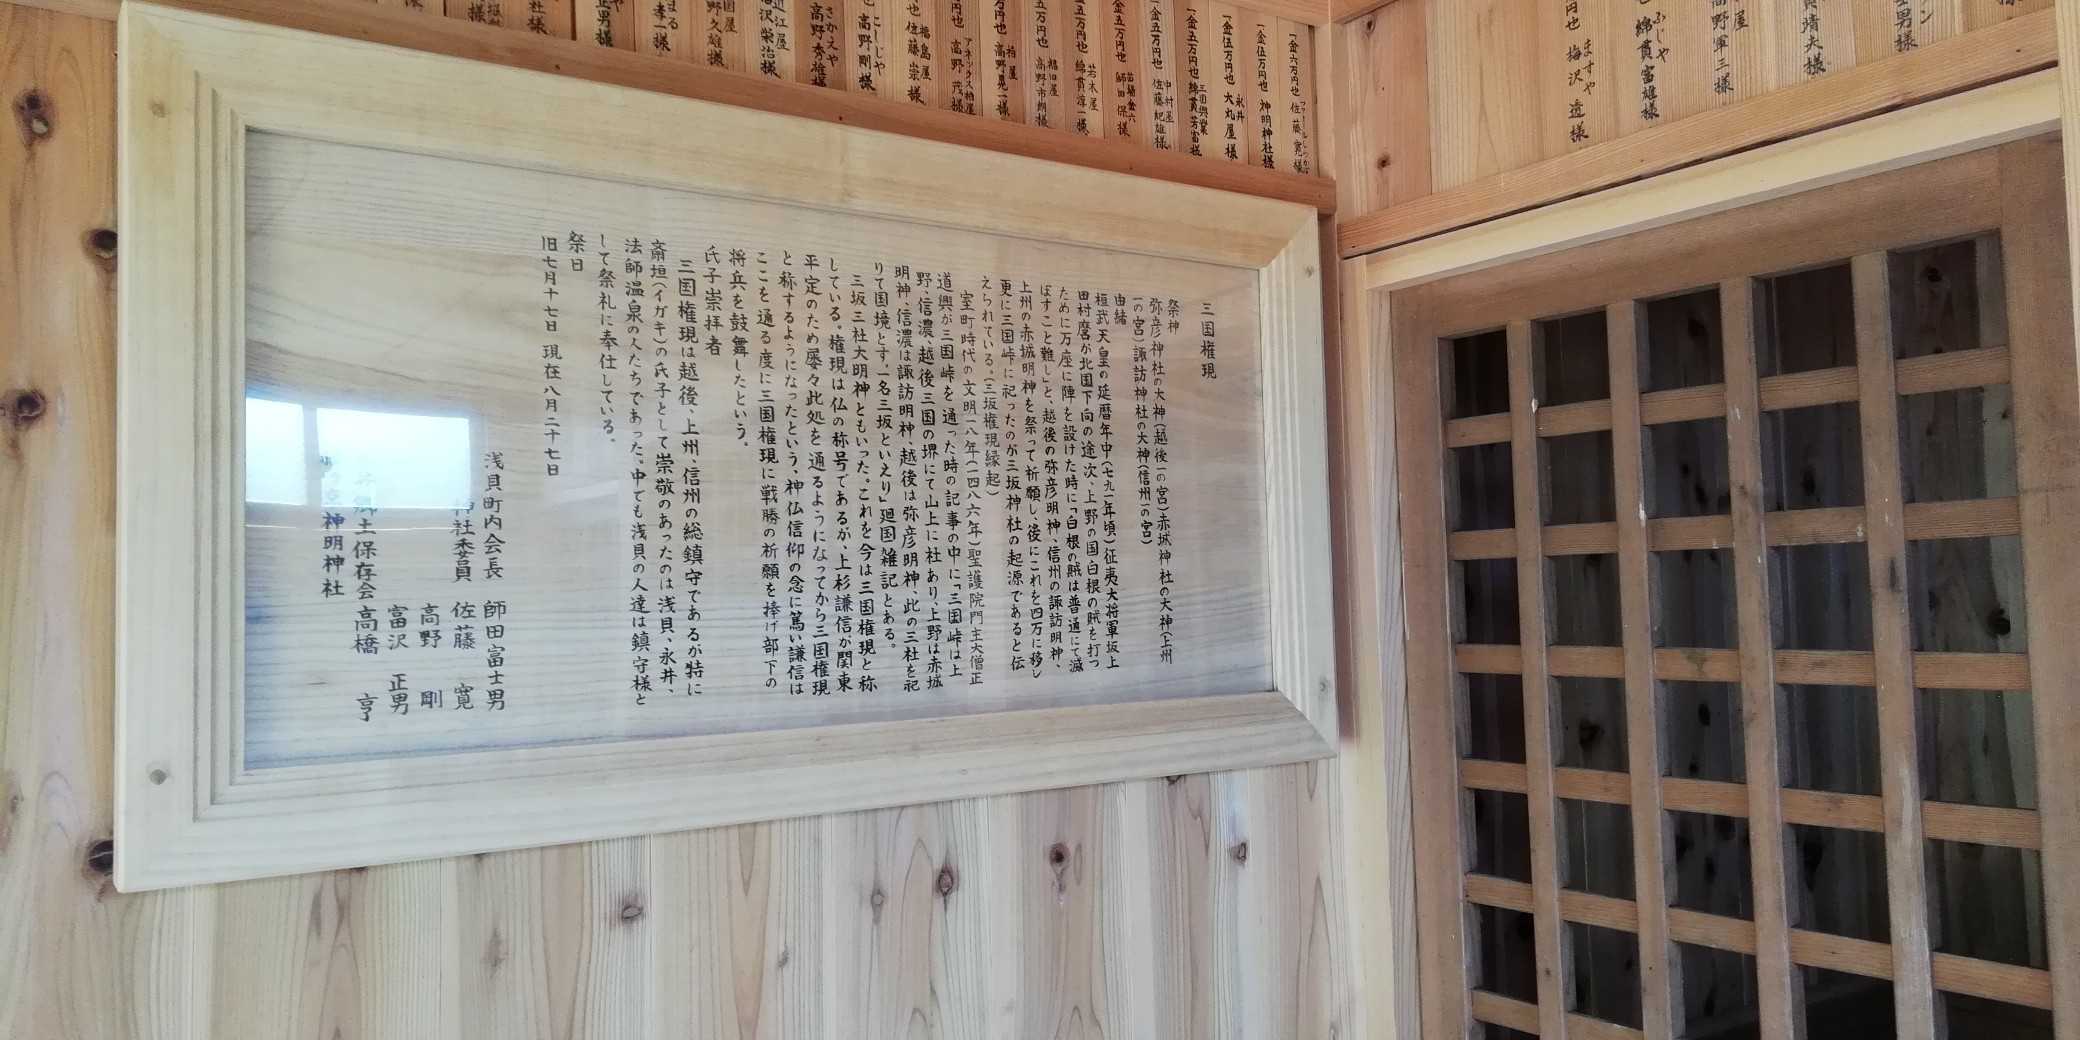 三国権現
祭神
弥彦神社の大神(越後一の宮)赤城神社の大神(上州
一の宮)諏訪神社の大神(信州一の宮)
由緒
桓武天皇の延暦年中(七九一年頃)征夷大将軍坂上
田村麿が北国下向の途次、上野の国白根の賊を打つ
ために万座に陣を設けた時に「白根の賊は普通にて滅
ぼすこと難し」と、越後の弥彦明神、信州の諏訪明神、
上州の赤城明神を祭って祈願し後にこれを四万に移し
更に三国峠に祀ったのが三坂神社の起源であると伝
えられている。(三坂権現縁起)
室町時代の文明一八年(一四八六年)聖護院門主大僧正
道興が三国峠を通った時の記事の中に「三国峠は上
野、信濃、越後三国の堺にて山上に社あり、上野は赤城
明神、信濃は諏訪明神、越後は弥彦明神、此の三社を祀
りて国境とす、一名三坂といえり」廻国雑記とある。
三坂三社大明神ともいった。これを今は三国権現と称
している。権現は仏の称号であるが、上杉謙信が関東
平定のため屡々此処を通るようになってから三国権現
と称するようになったという、神仏信仰の念に篤い謙信は
ここを通る度に三国権現に戦勝の祈願を捧げ部下の
将兵を鼓舞したという。
氏子崇拝者
三国権現は越後、上州、信州の総鎮守であるが特に
斎垣(イガキ)の氏子として崇敬のあったのは浅貝、永井、
法師温泉の人たちであった。中でも浅貝の人達は鎮守様と
して祭礼に奉仕している。
祭日
旧七月十七日 現在八月二十七日
浅貝町内会長 師田富士男
神社委員 佐藤 寛
高野 剛
富沢 正男
郷土保存会 高橋 亨
神明神社
一金六万円也 佐藤 寛様
一金伍万円也 神明神社様
一金伍万円也 永井 大丸屋様
一金五万円也 三国興業 綿貫芳富様
一金五万円也 中村屋 佐藤紀雄様
一金五万円也 苗場金六 師田保様
五万円也 若木屋 綿貫淳一様
五万円也 稲田屋 高野市朗様
万円也 柏屋 高野晃一様
円也 アネックス柏屋 高野茂様
也 福島屋 佐藤崇様
にしじや 高野剛様
さかえや 高野秀雄様
近江屋 沢栄治様
野久雄様
孝一様
正男様
社様
ますや 梅沢透様
ふじや 綿貫富雄様
屋 高野軍三様
貫靖夫様
士男様